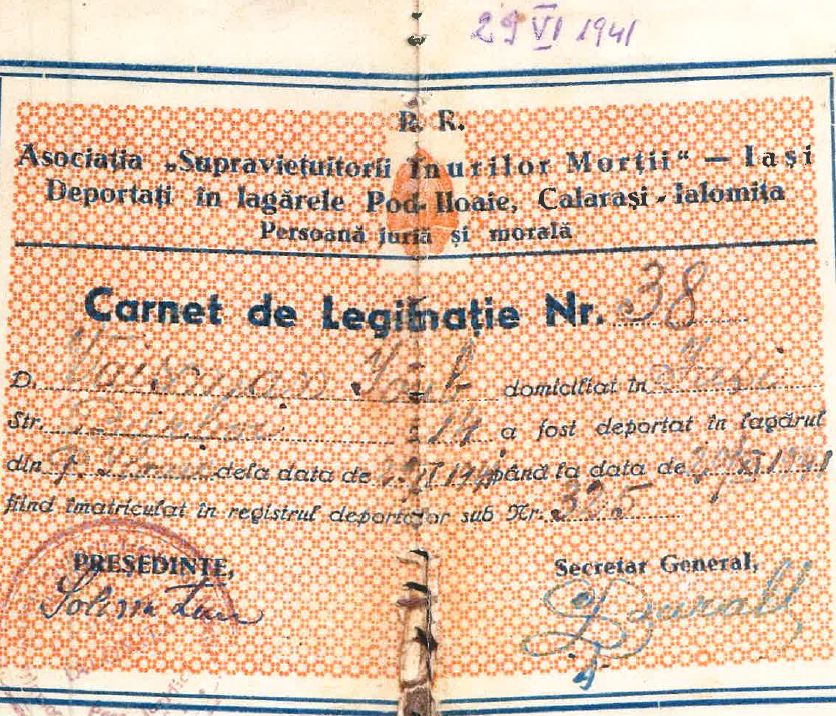 29 VI 1941
R. R.
Asociatia „Supraviețuitorii Trenurilor Morții“ — Iași
Deportați în lagărele Pod-Iloaie, Calarași-Ialomița
Persoană și morală
Carnet de Legitimație Nr. 38
D. Vaisman domiciliat în Iași
Str. 14 a fost deportat în lagărul
din P. Iloaie dela data de până la data de
fiind imatriculat în registrul deportaților sub Nr. 325
PREȘEDINTE, Secretar General,